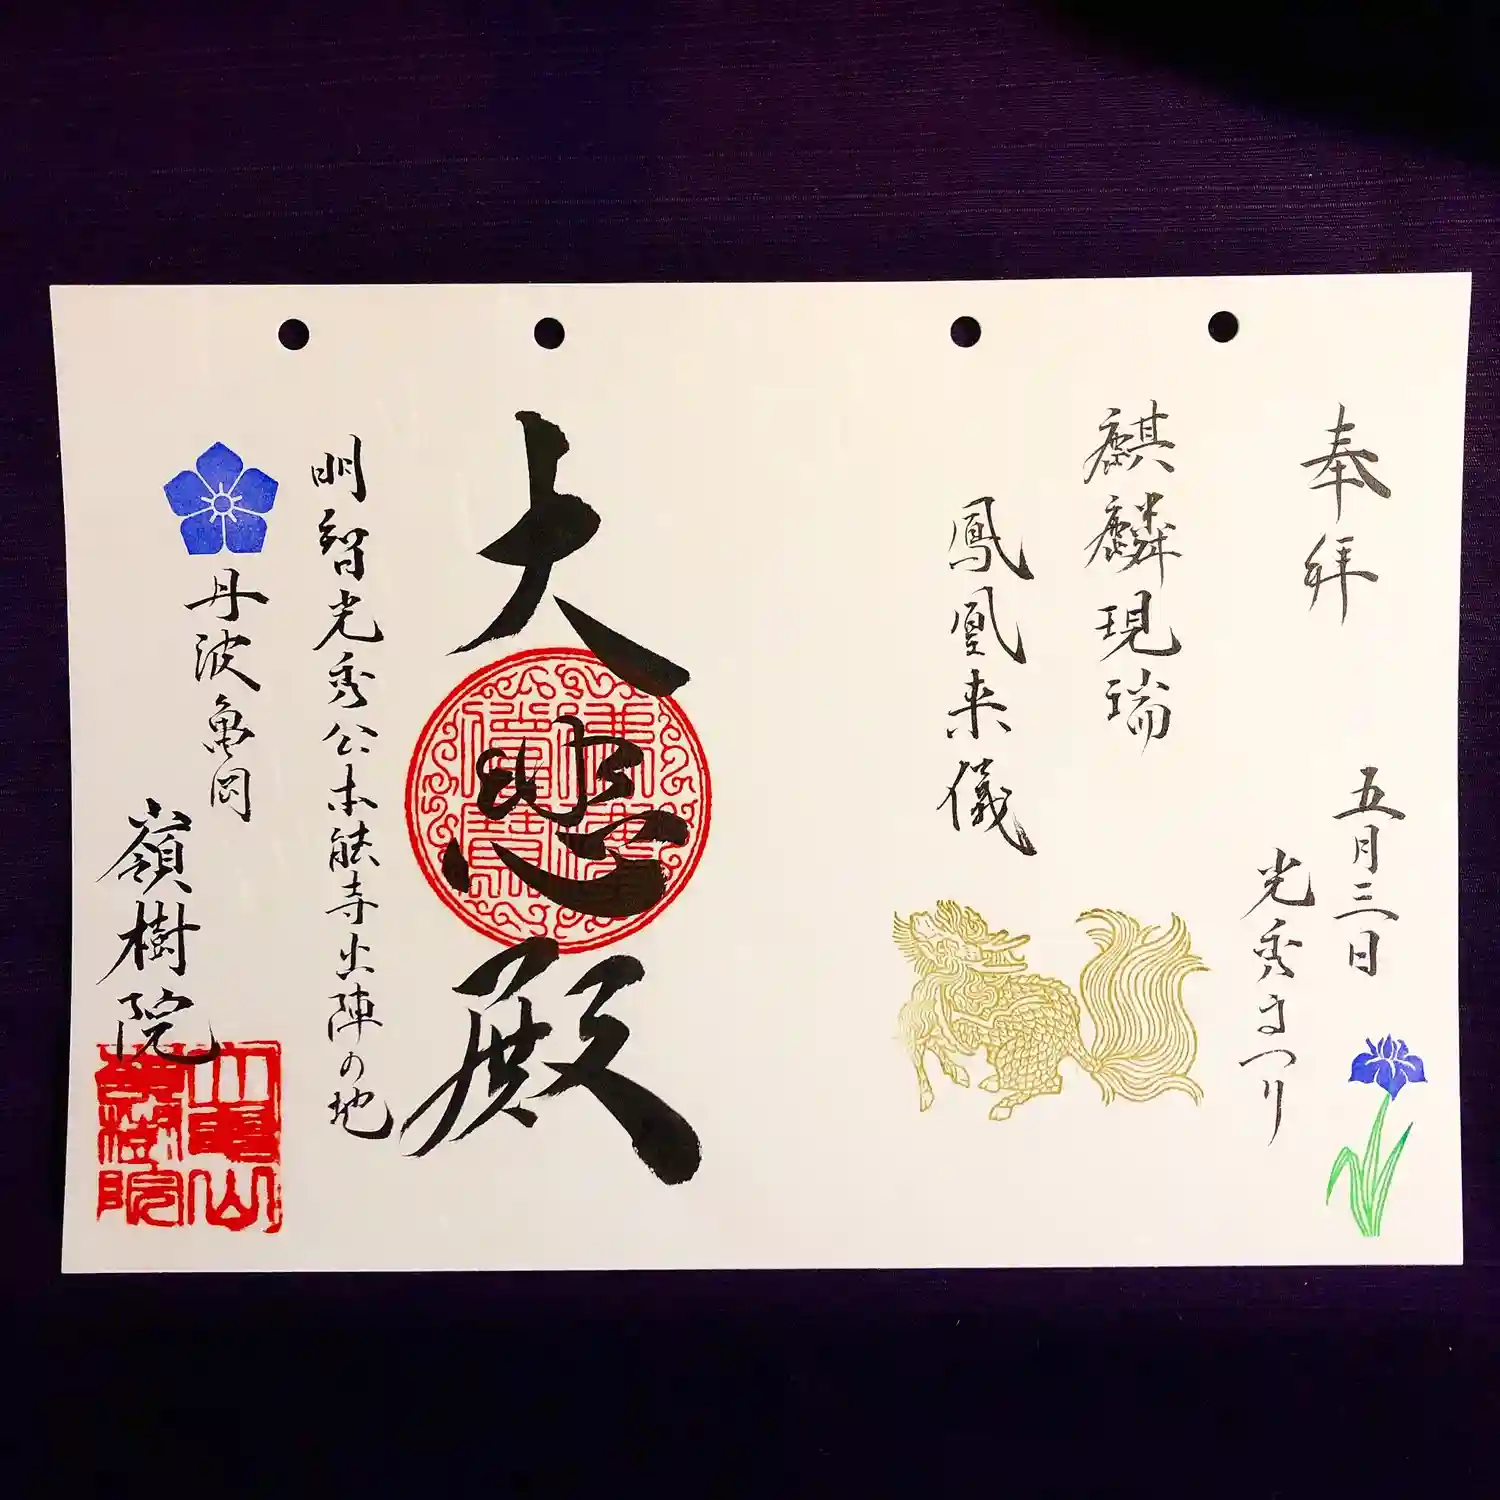 奉拝
五月三日
光秀まつり
麒麟現瑞
鳳凰来儀
大悲殿
明智光秀公本能寺出陣の地
丹波亀岡
嶺樹院
大亀山
嶺樹院